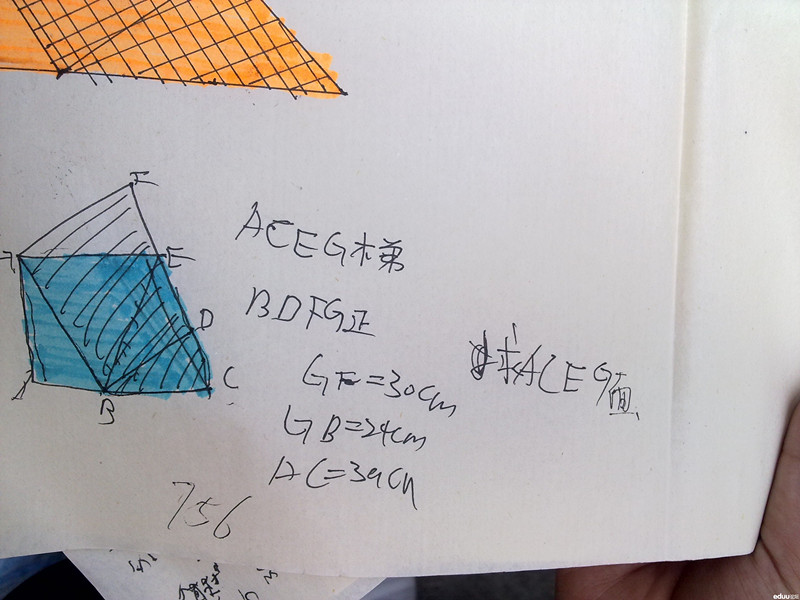 F
G
E
D
C
A
B
ACEG梯
BDFG正
GF=30cm
GB=24cm
AC=39cm
求ACEG面
756
eduu